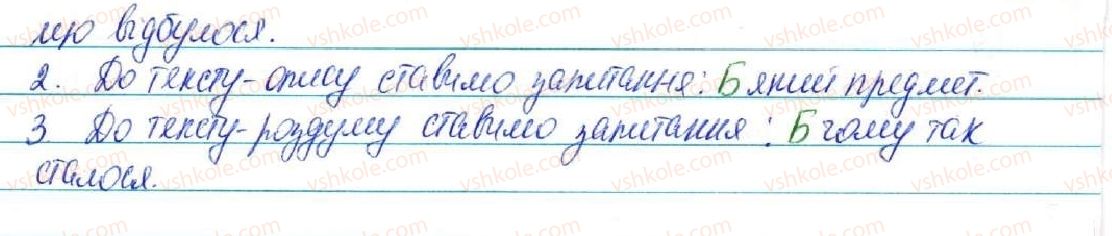 що відбулося.
2. До тексту-опису ставимо запитання: Б який предмет.
3. До тексту-роздуму ставимо запитання: Б чому так
сталося.